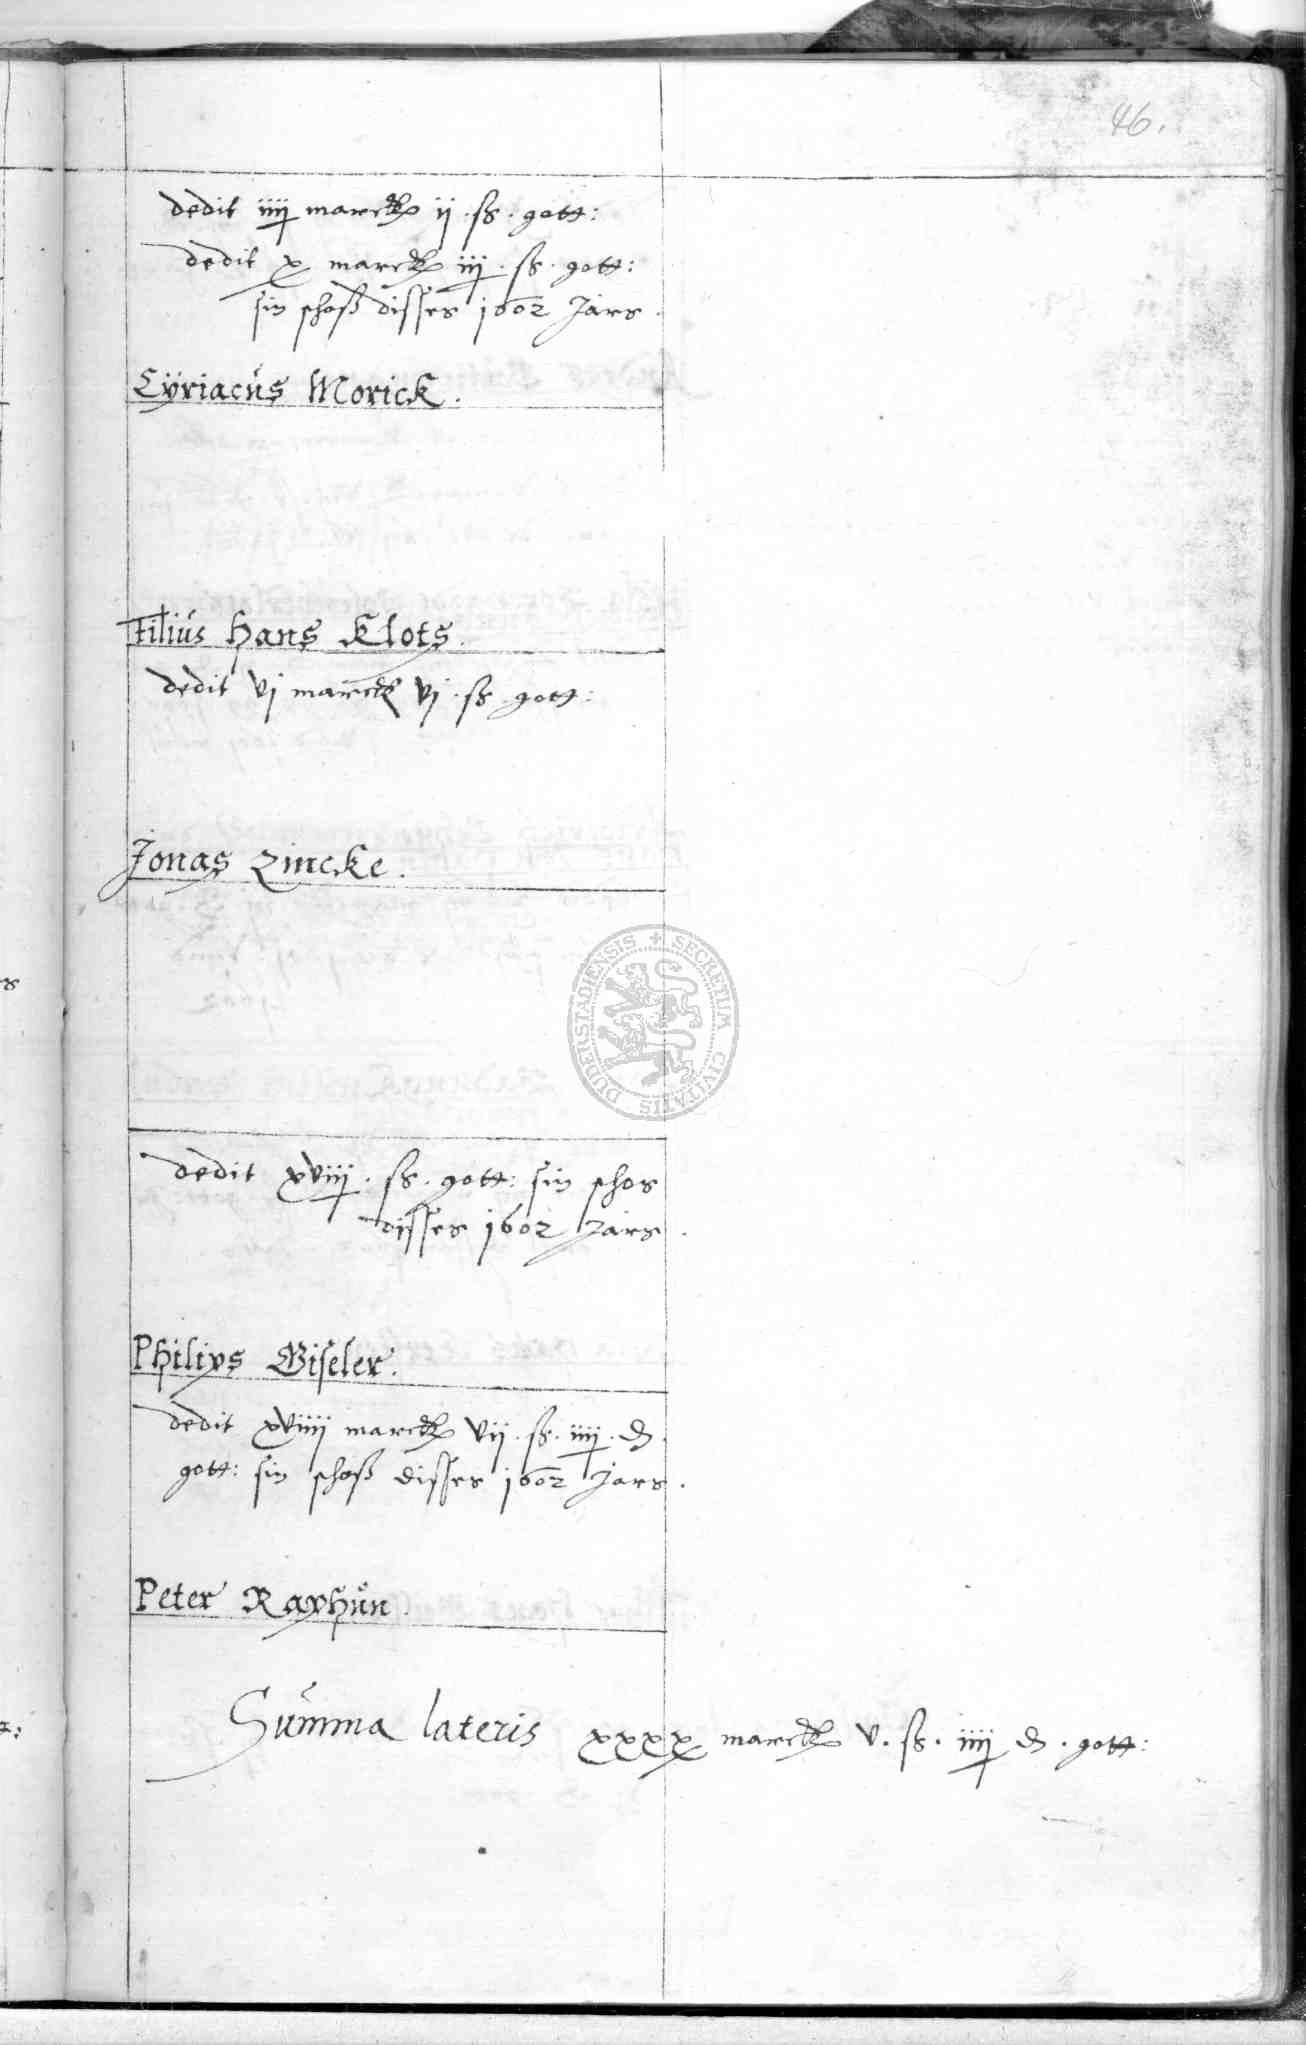 46.
dedit iiij marck ij . ß . gott:
dedit x marck iiij . ß . gott:
sin schoß disses 1602 Jars .
Cÿriacus Morick .
Filius Hans Klots .
dedit vj marck vj . ß . gott:
Jonas Zincke .
DUDERSTADIENSIS + SECRETUM CIVITATIS
dedit xviiij . ß . gott: sin schos
disses 1602 Jars .
Philips Giseler .
dedit xviiii marck vii . ß . iiij . d .
gott: sin schoß disses 1602 Jars .
Peter Raphun .
Summa lateris xxxx marck v . ß . iiij d . gott: